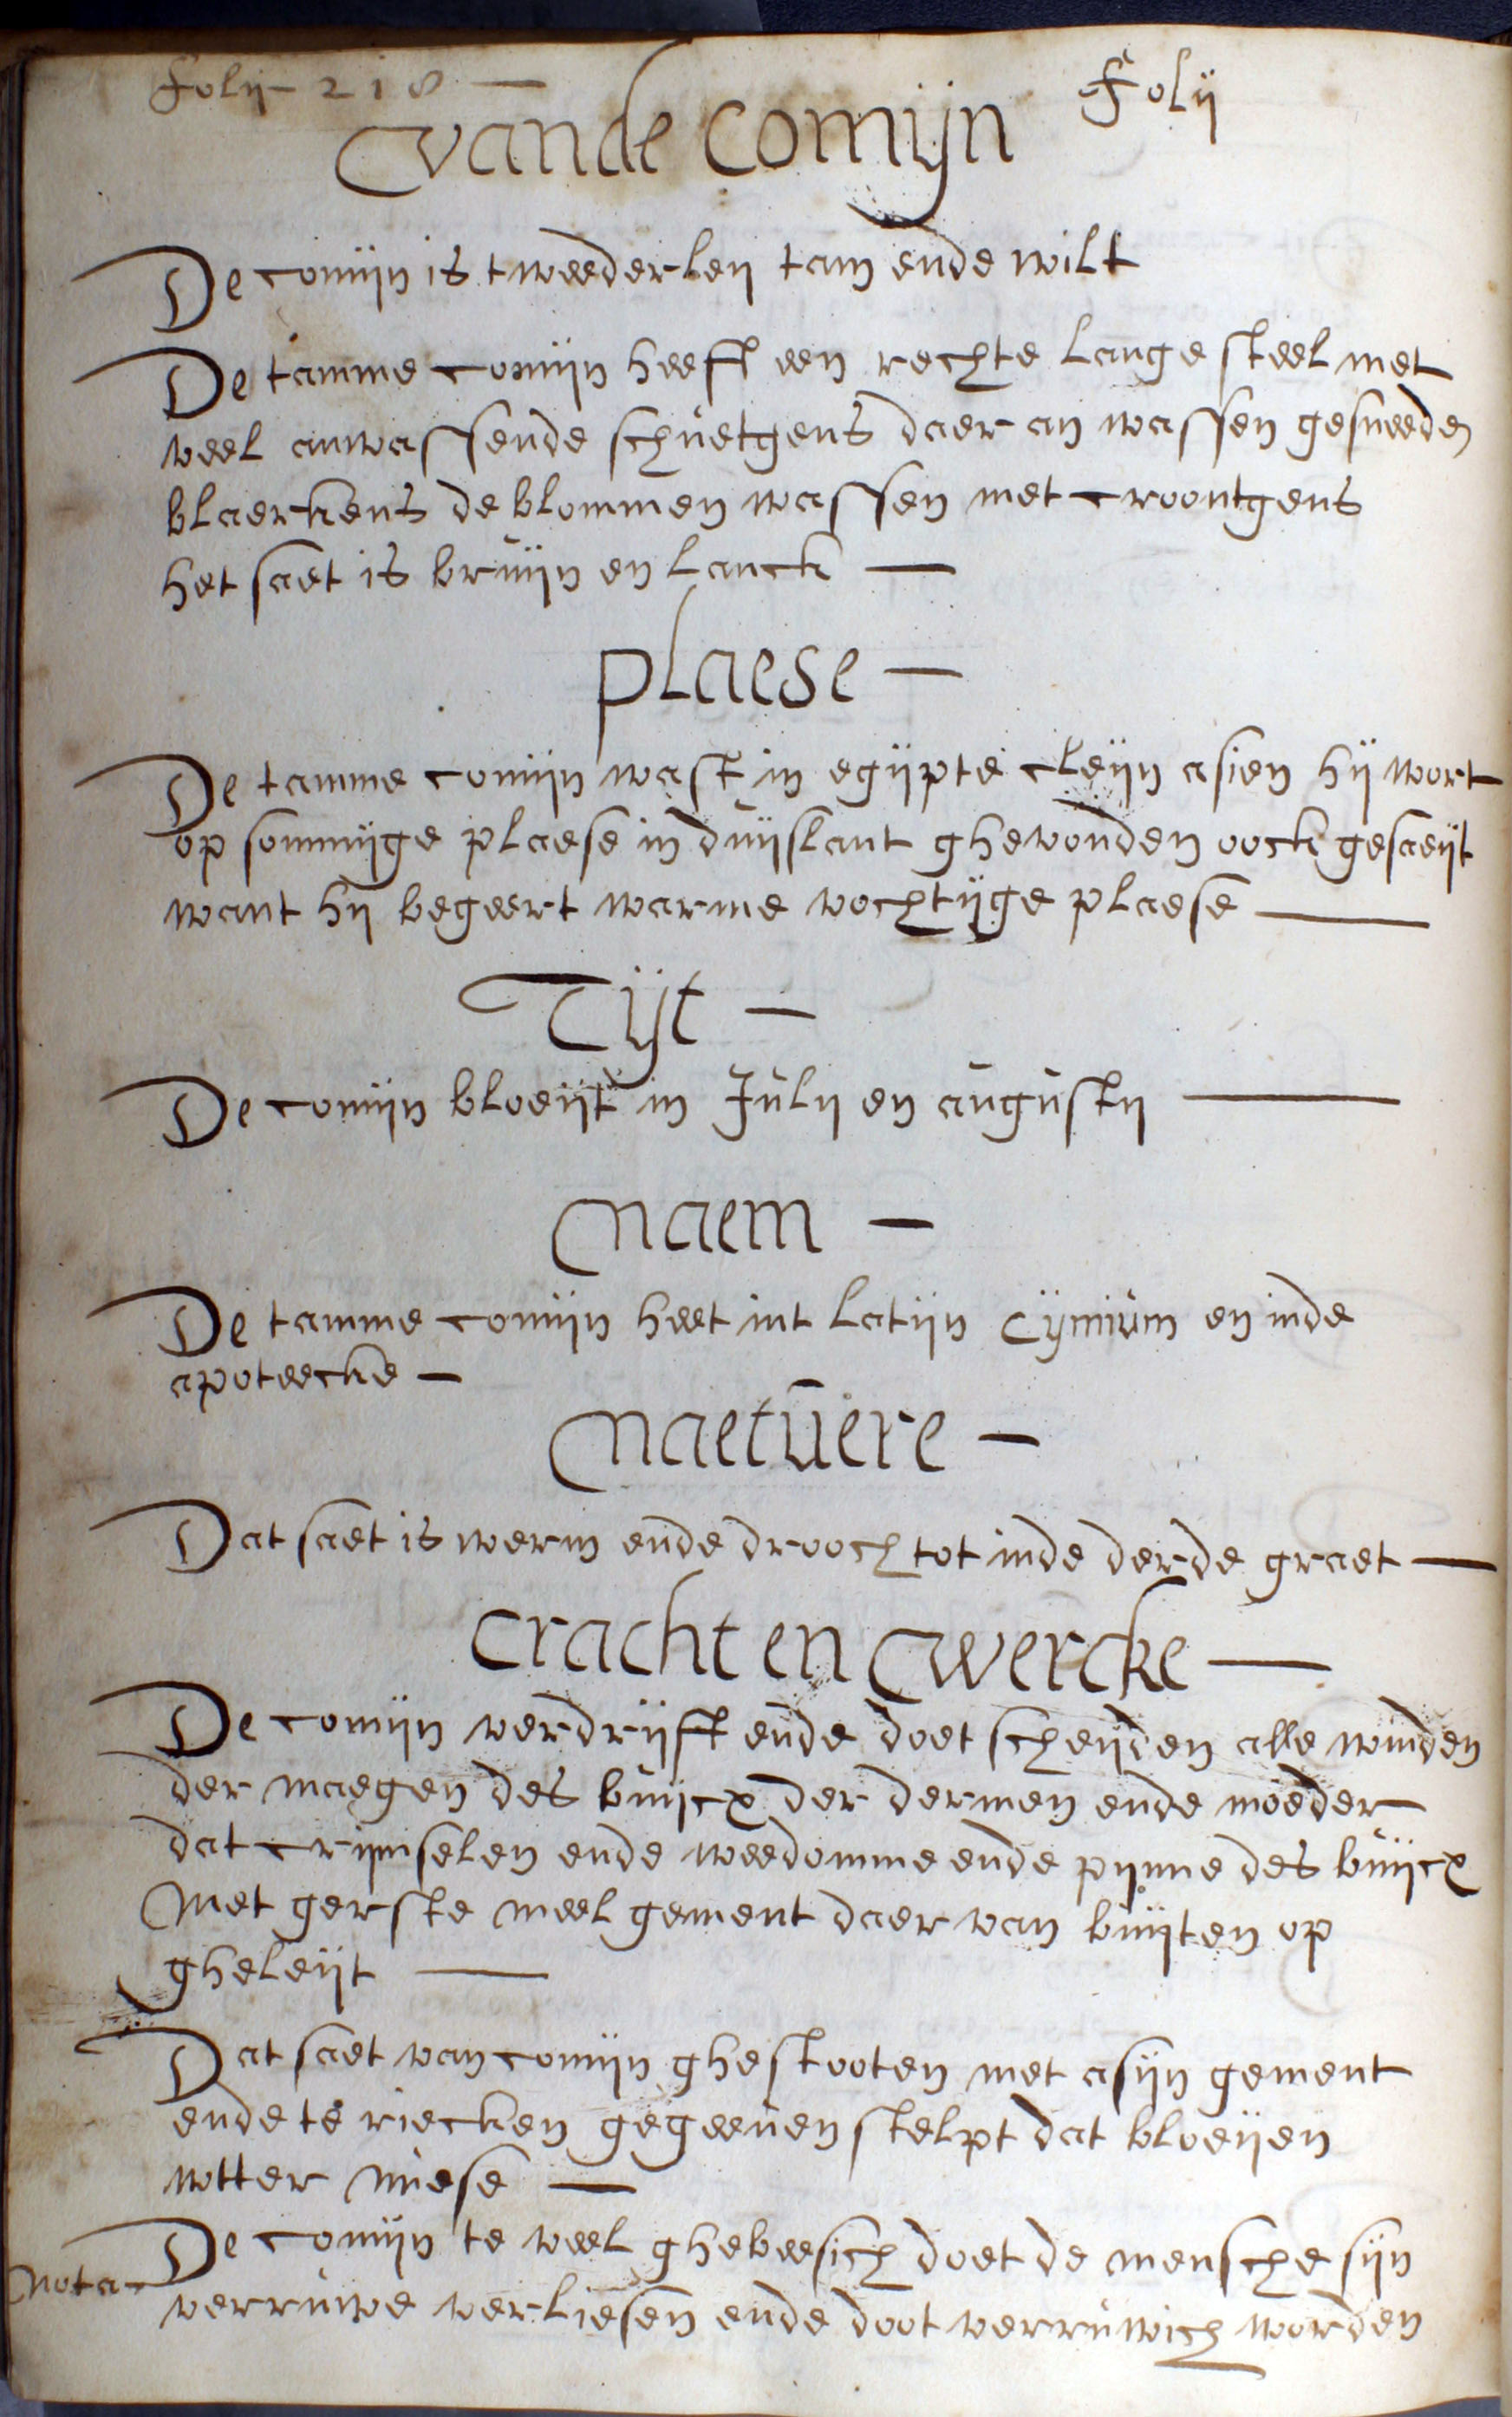 Folij 218 — Folij
vande comijn
De comijn is tweederleij tam ende wilt
De tamme comijn heeft een rechte lange steel met
veel anwassende schuetgens daer an wassen gesneeden
blaerkens de blommen wassen met croontgens
het saet is bruijn en lanck —
plaese —
De tamme comijn wast in egijpte cleijn asien hij wort
op sommijge plaese in duijslant ghevonden oock gesaeijt
want hij begeert warme vochtijge plaese —
Tijt —
De comijn bloeijt in Julij en augustij —
Naem —
De tamme comijn heet int latijn Cijmium en inde
apoteecke —
Naetuere —
Dat saet is werm ende drooch tot inde derde graet —
cracht en wercke —
De comijn verdrijft ende doet scheijden alle winden
der maegen des buijcx der dermen ende moeder
dat crijmselen ende weedomme ende pijnne des buijcx
Met gerste meel gement daer van buijten op
gheleijt —
Dat saet van comijn ghestooten met asijn gement
ende te riecken gegeeuen stelpt dat bloeijen
wtter nuese —
De comijn te veel ghebeesich doet de mensche sijn
Nota verruwe verliesen ende doot verruwich worden